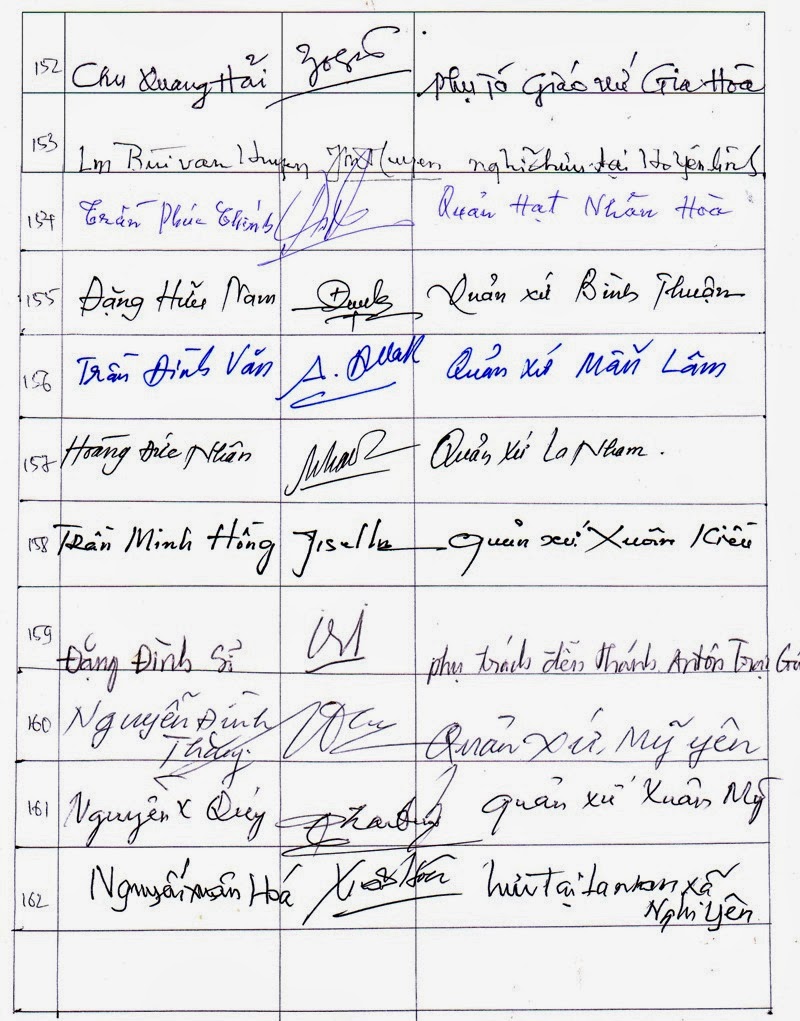 152 Chu Quang Hải phụ tá Giáo xứ Gia Hoà
153 Lm Bùi văn Huyên nghỉ hưu tại
154 Trần Phúc Chính Quản Hạt Nhân Hoà
155 Đặng Hữu Nam Quản xứ Bình Thuận
156 Trần Đình Văn Quản xứ Mẫn Lâm
157 Hoàng Đức Nhân Quản xứ La Nham.
158 Trần Minh Hồng Quản xứ Xuân Kiều
159 Đặng Đình Sĩ phụ trách đền thánh Antôn
160 Nguyễn Đình Quản xứ Mỹ yên
Thăng
161 Nguyễn X Quý Quản xứ Xuân Mỹ
162 Nguyễn xuân Hoá hưu tại xã
Nghi Yên